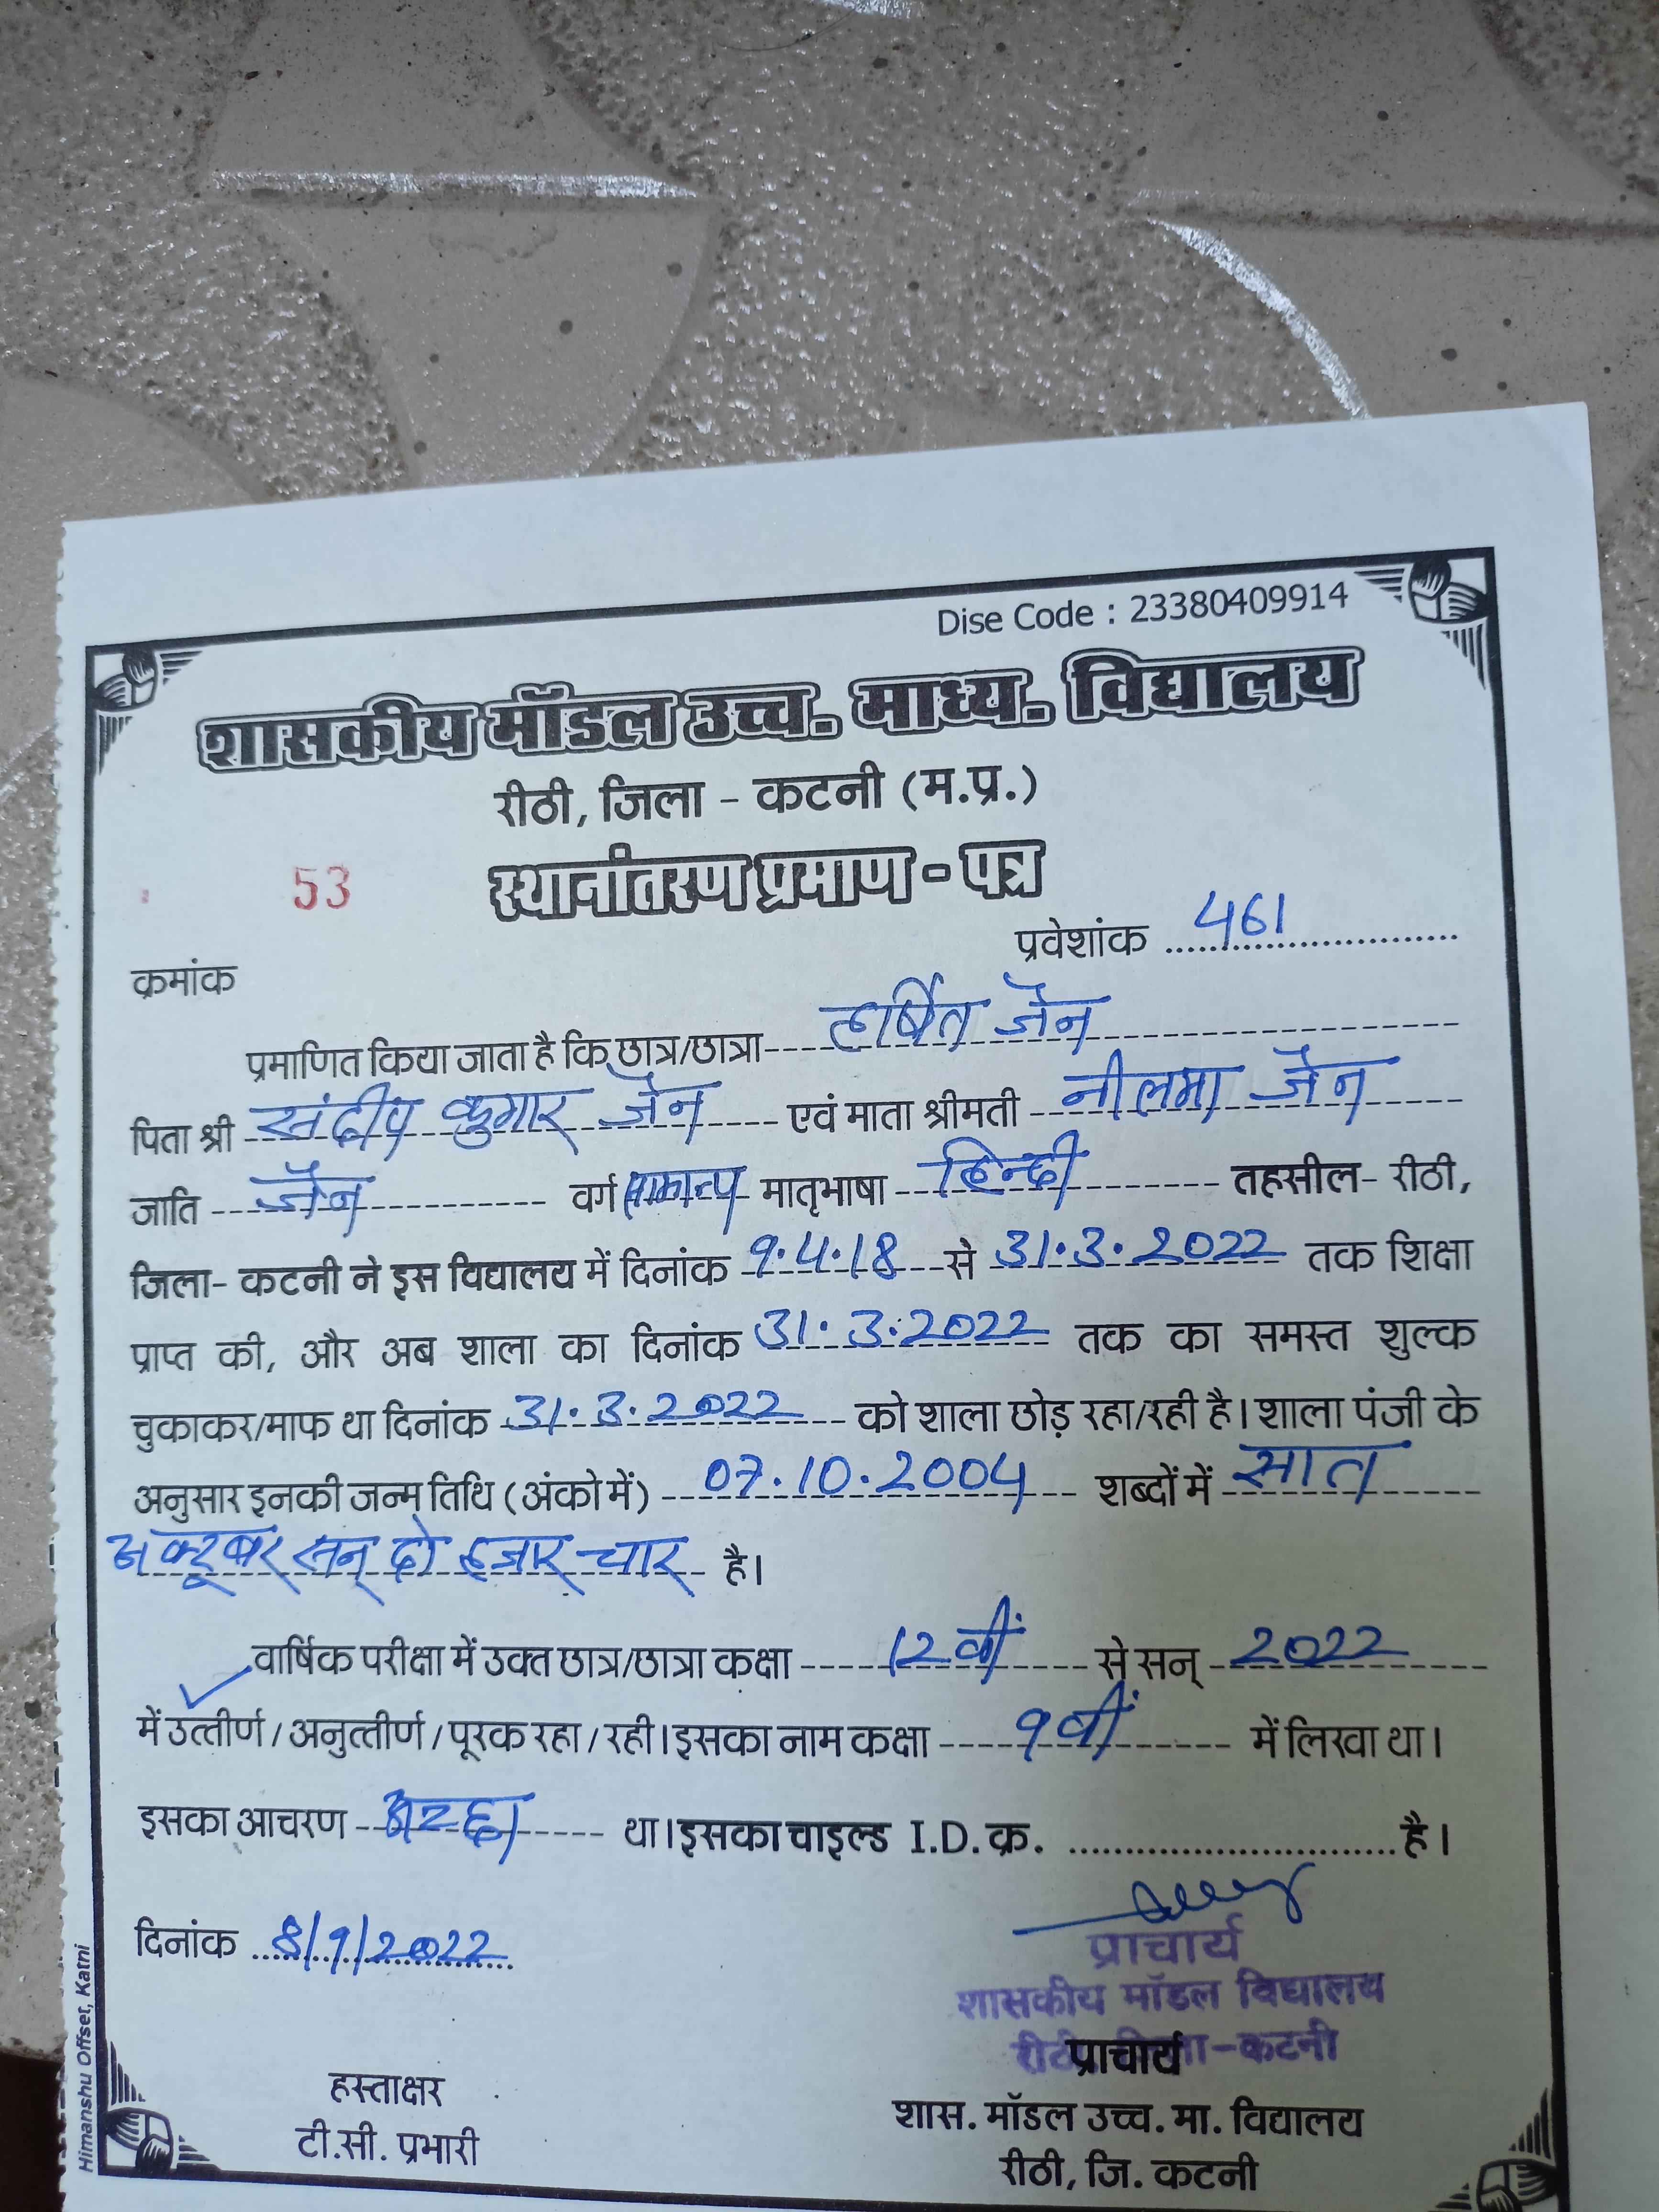 Dise Code : 23380409914
शासकीय मॉडल उच्च. माध्य. विद्यालय
रीठी, जिला - कटनी (म.प्र.)
53
स्थानांतरण प्रमाण - पत्र
प्रवेशांक 461
क्रमांक
प्रमाणित किया जाता है कि छात्र/छात्रा हर्षित जैन
पिता श्री संदीप कुमार जैन एवं माता श्रीमती नीलमा जैन
जाति जैन वर्ग सामान्य मातृभाषा हिन्दी तहसील- रीठी,
जिला- कटनी ने इस विद्यालय में दिनांक 9.4.18 से 31.3.2022 तक शिक्षा
प्राप्त की, और अब शाला का दिनांक 31.3.2022 तक का समस्त शुल्क
चुकाकर/माफ था दिनांक 31.3.2022 को शाला छोड़ रहा/रही है। शाला पंजी के
अनुसार इनकी जन्म तिथि (अंको में) 07.10.2004 शब्दों में सात
अक्टूबर सन् दो हजार चार है।
वार्षिक परीक्षा में उक्त छात्र/छात्रा कक्षा 12वीं से सन् 2022
में उत्तीर्ण / अनुत्तीर्ण / पूरक रहा / रही। इसका नाम कक्षा 9वीं में लिखा था।
इसका आचरण अच्छा था। इसका चाइल्ड I.D. क्र. है।
दिनांक 8/9/2022
प्राचार्य
शासकीय मॉडल विद्यालय
-कटनी
प्राचार्य
हस्ताक्षर
टी.सी. प्रभारी
शास. मॉडल उच्च. मा. विद्यालय
रीठी, जि. कटनी
Himanshu Offset, Katni